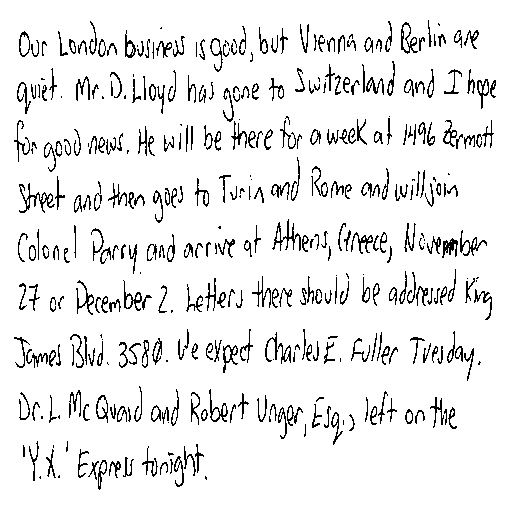 Our London business is good, but Vienna and Berlin are
quiet. Mr. D. Lloyd has gone to Switzerland and I hope
for good news. He will be there for a week at 1496 Zermott
Street and then goes to Turin and Rome and will join
Colonel Parry and arrive at Athens, Greece, November
27 or December 2. Letters there should be addressed King
James Blvd. 3580. We expect Charles E. Fuller Tuesday.
Dr. L. McQuaid and Robert Unger, Esq., left on the
'Y.X.' Express tonight.